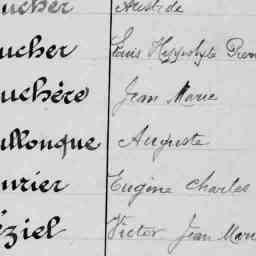 ucher Aristide
ucher Louis Hyppolyte
uchère Jean Marie
ullouque Auguste
urier Eugène Charles
éziel Victor Jean Marie